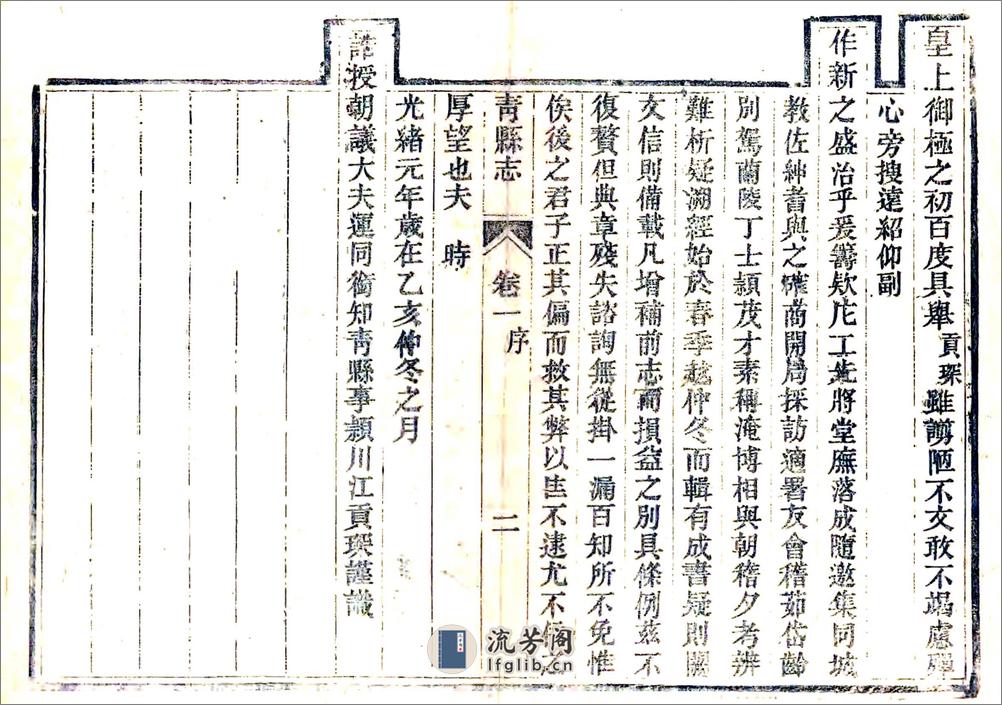 皇上御極之初百度具舉貢琛雖謭陋不文敢不竭慮殫
心旁搜遠紹仰副
作新之盛治乎爰籌欵庀工先將堂廡落成隨邀集同城
教佐紳耆與之確商開局採訪適署友會稽茹岱齡
別駕蘭陵丁士頴茂才素稱淹博相與朝稽夕考辨
難析疑溯經始於春季越仲冬而輯有成書疑則闕
文信則備載凡增補前志而損益之別具條例茲不
復贅但典章殘失諮詢無從掛一漏百知所不免惟
俟後之君子正其偏而救其弊以匡不逮尤不
靑縣志 卷一 序 二
厚望也夫 時
光緒元年歲在乙亥仲冬之月
誥授朝議大夫運同銜知靑縣事頴川江貢琛謹識
流芳阁
lfglib.cn